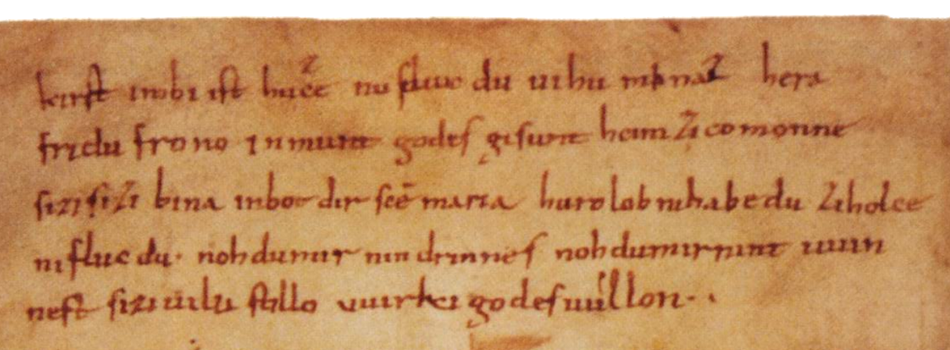 kirst imbi ist hucze nu fluic du uihu minaz hera
fridu frono inmunt godes gisunt heim zi comonne
sizi sizi bina inbot dir scē maria hurolob nihabe du ziholce
ni fluc du noh du mir nindrinnes noh du mir nintuuin
nest sizi uilu stillo vuirki godes uuillon